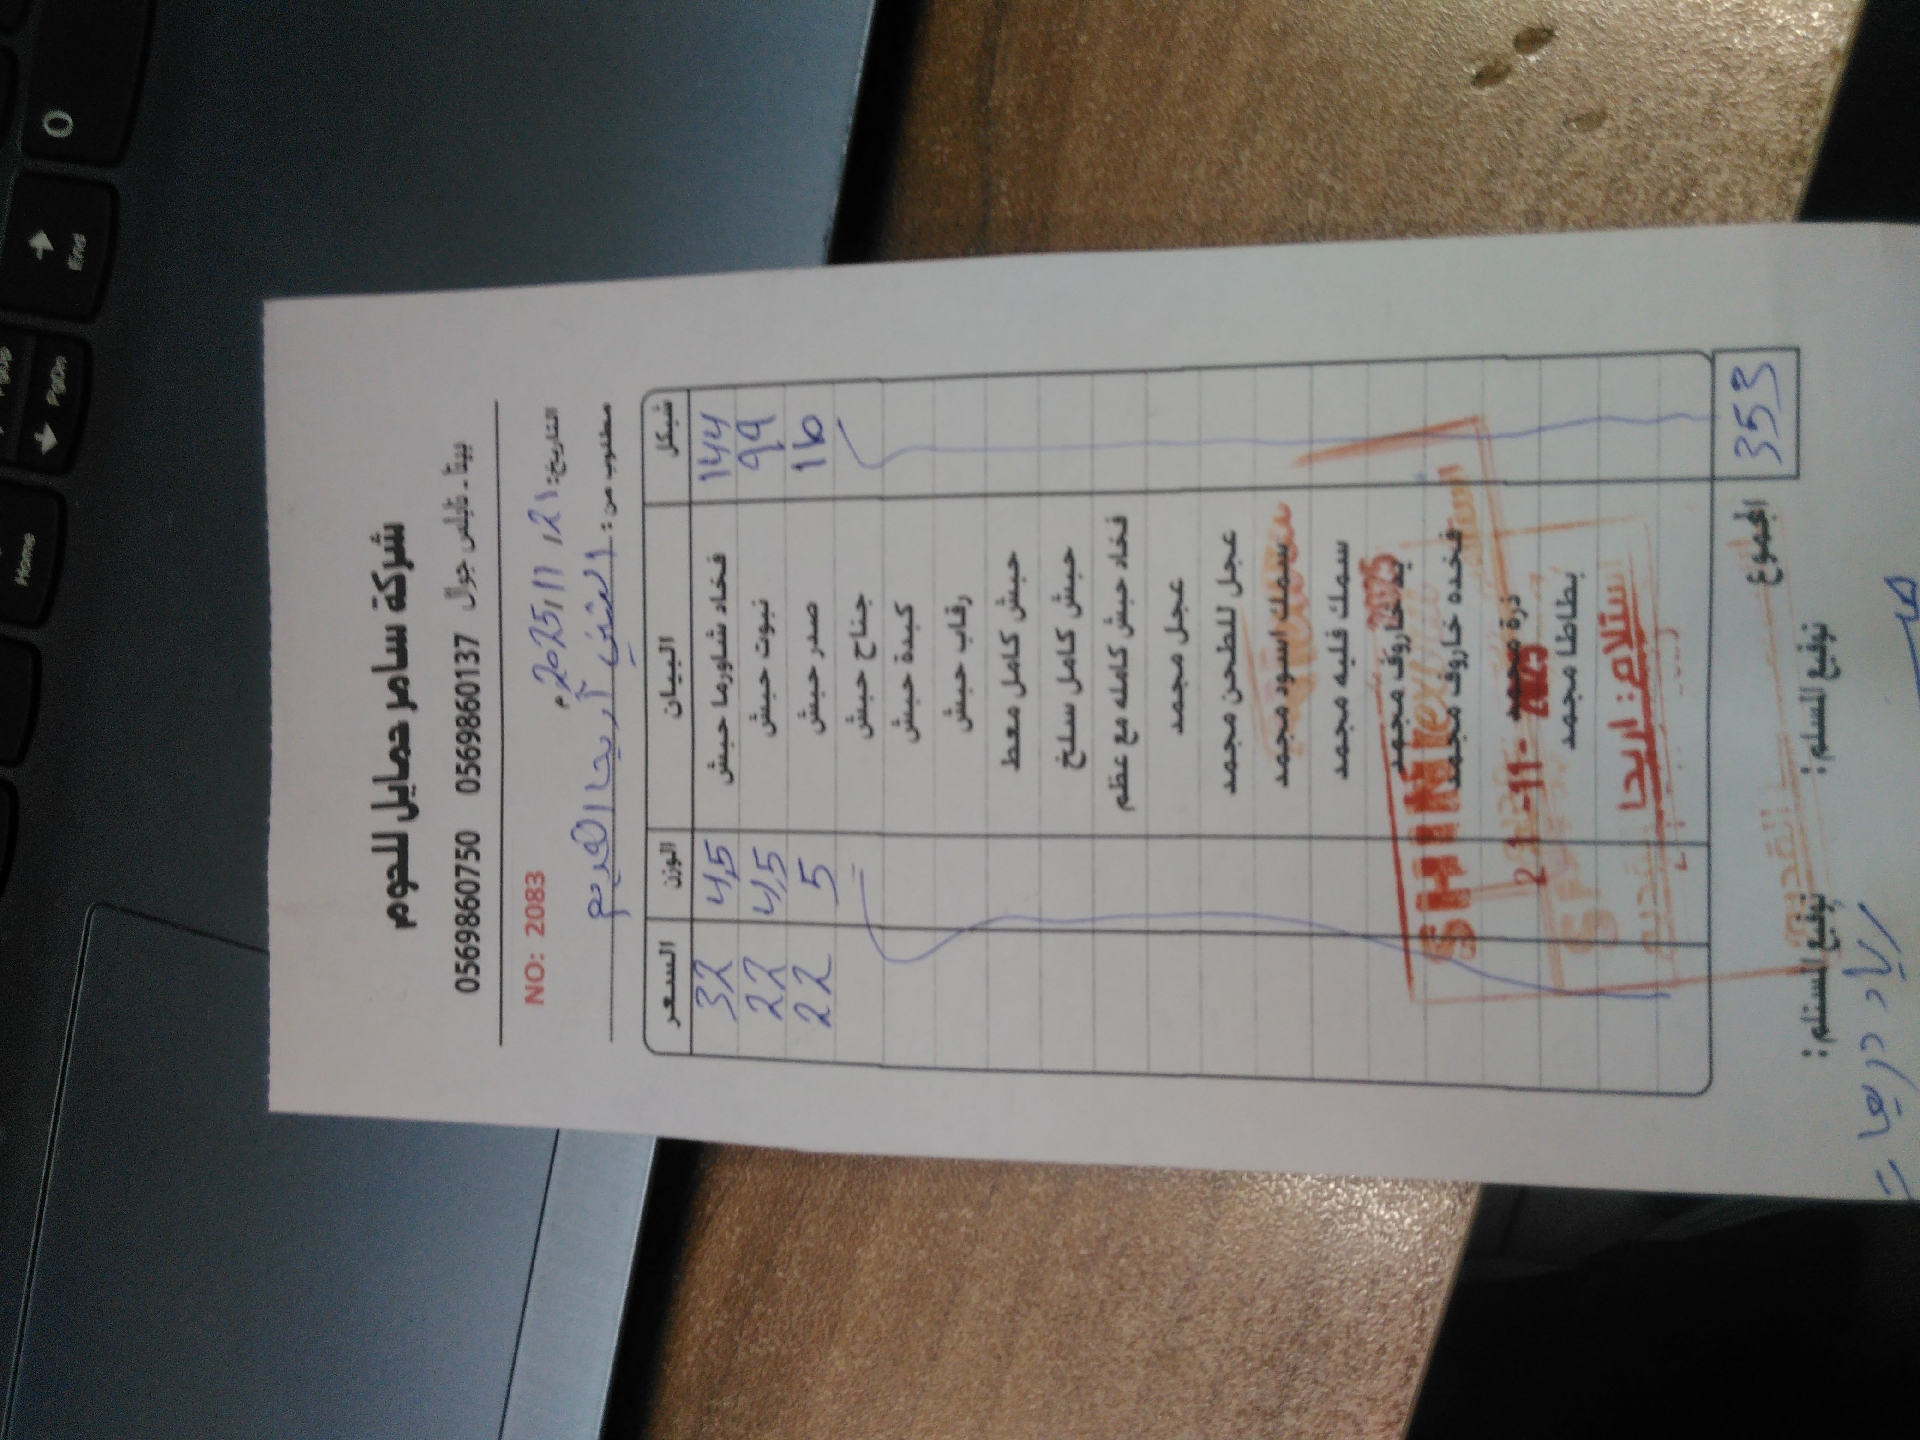 شركة سامر حمايل للحوم
بيتا - نابلس جوال 0569860137 0569860750
التاريخ: 21 / 11 / 2025م NO: 2083
مطلوب من: أريحا القديم
شيكل البيان الوزن السعر
144 فخاد شاورما حبش 4,5 32
99 نبوت حبش 4,5 22
110 صدر حبش 5 22
جناح حبش
كبدة حبش
رقاب حبش
حبش كامل ممعط
حبش كامل سلخ
فخاد حبش كامله مع عظم
عجل مجمد
عجل للطحن مجمد
سمك اسود مجمد
سمك فليه مجمد
يد خاروف مجمد
فخده خاروف مجمد
ذرة مجمد
بطاطا مجمد
SHINI
2025
21-11-
استلام: اريحا
القديم
353 المجموع
توقيع المسلم: توقيع المستلم:
0
End
PgUp
PgDn
Home